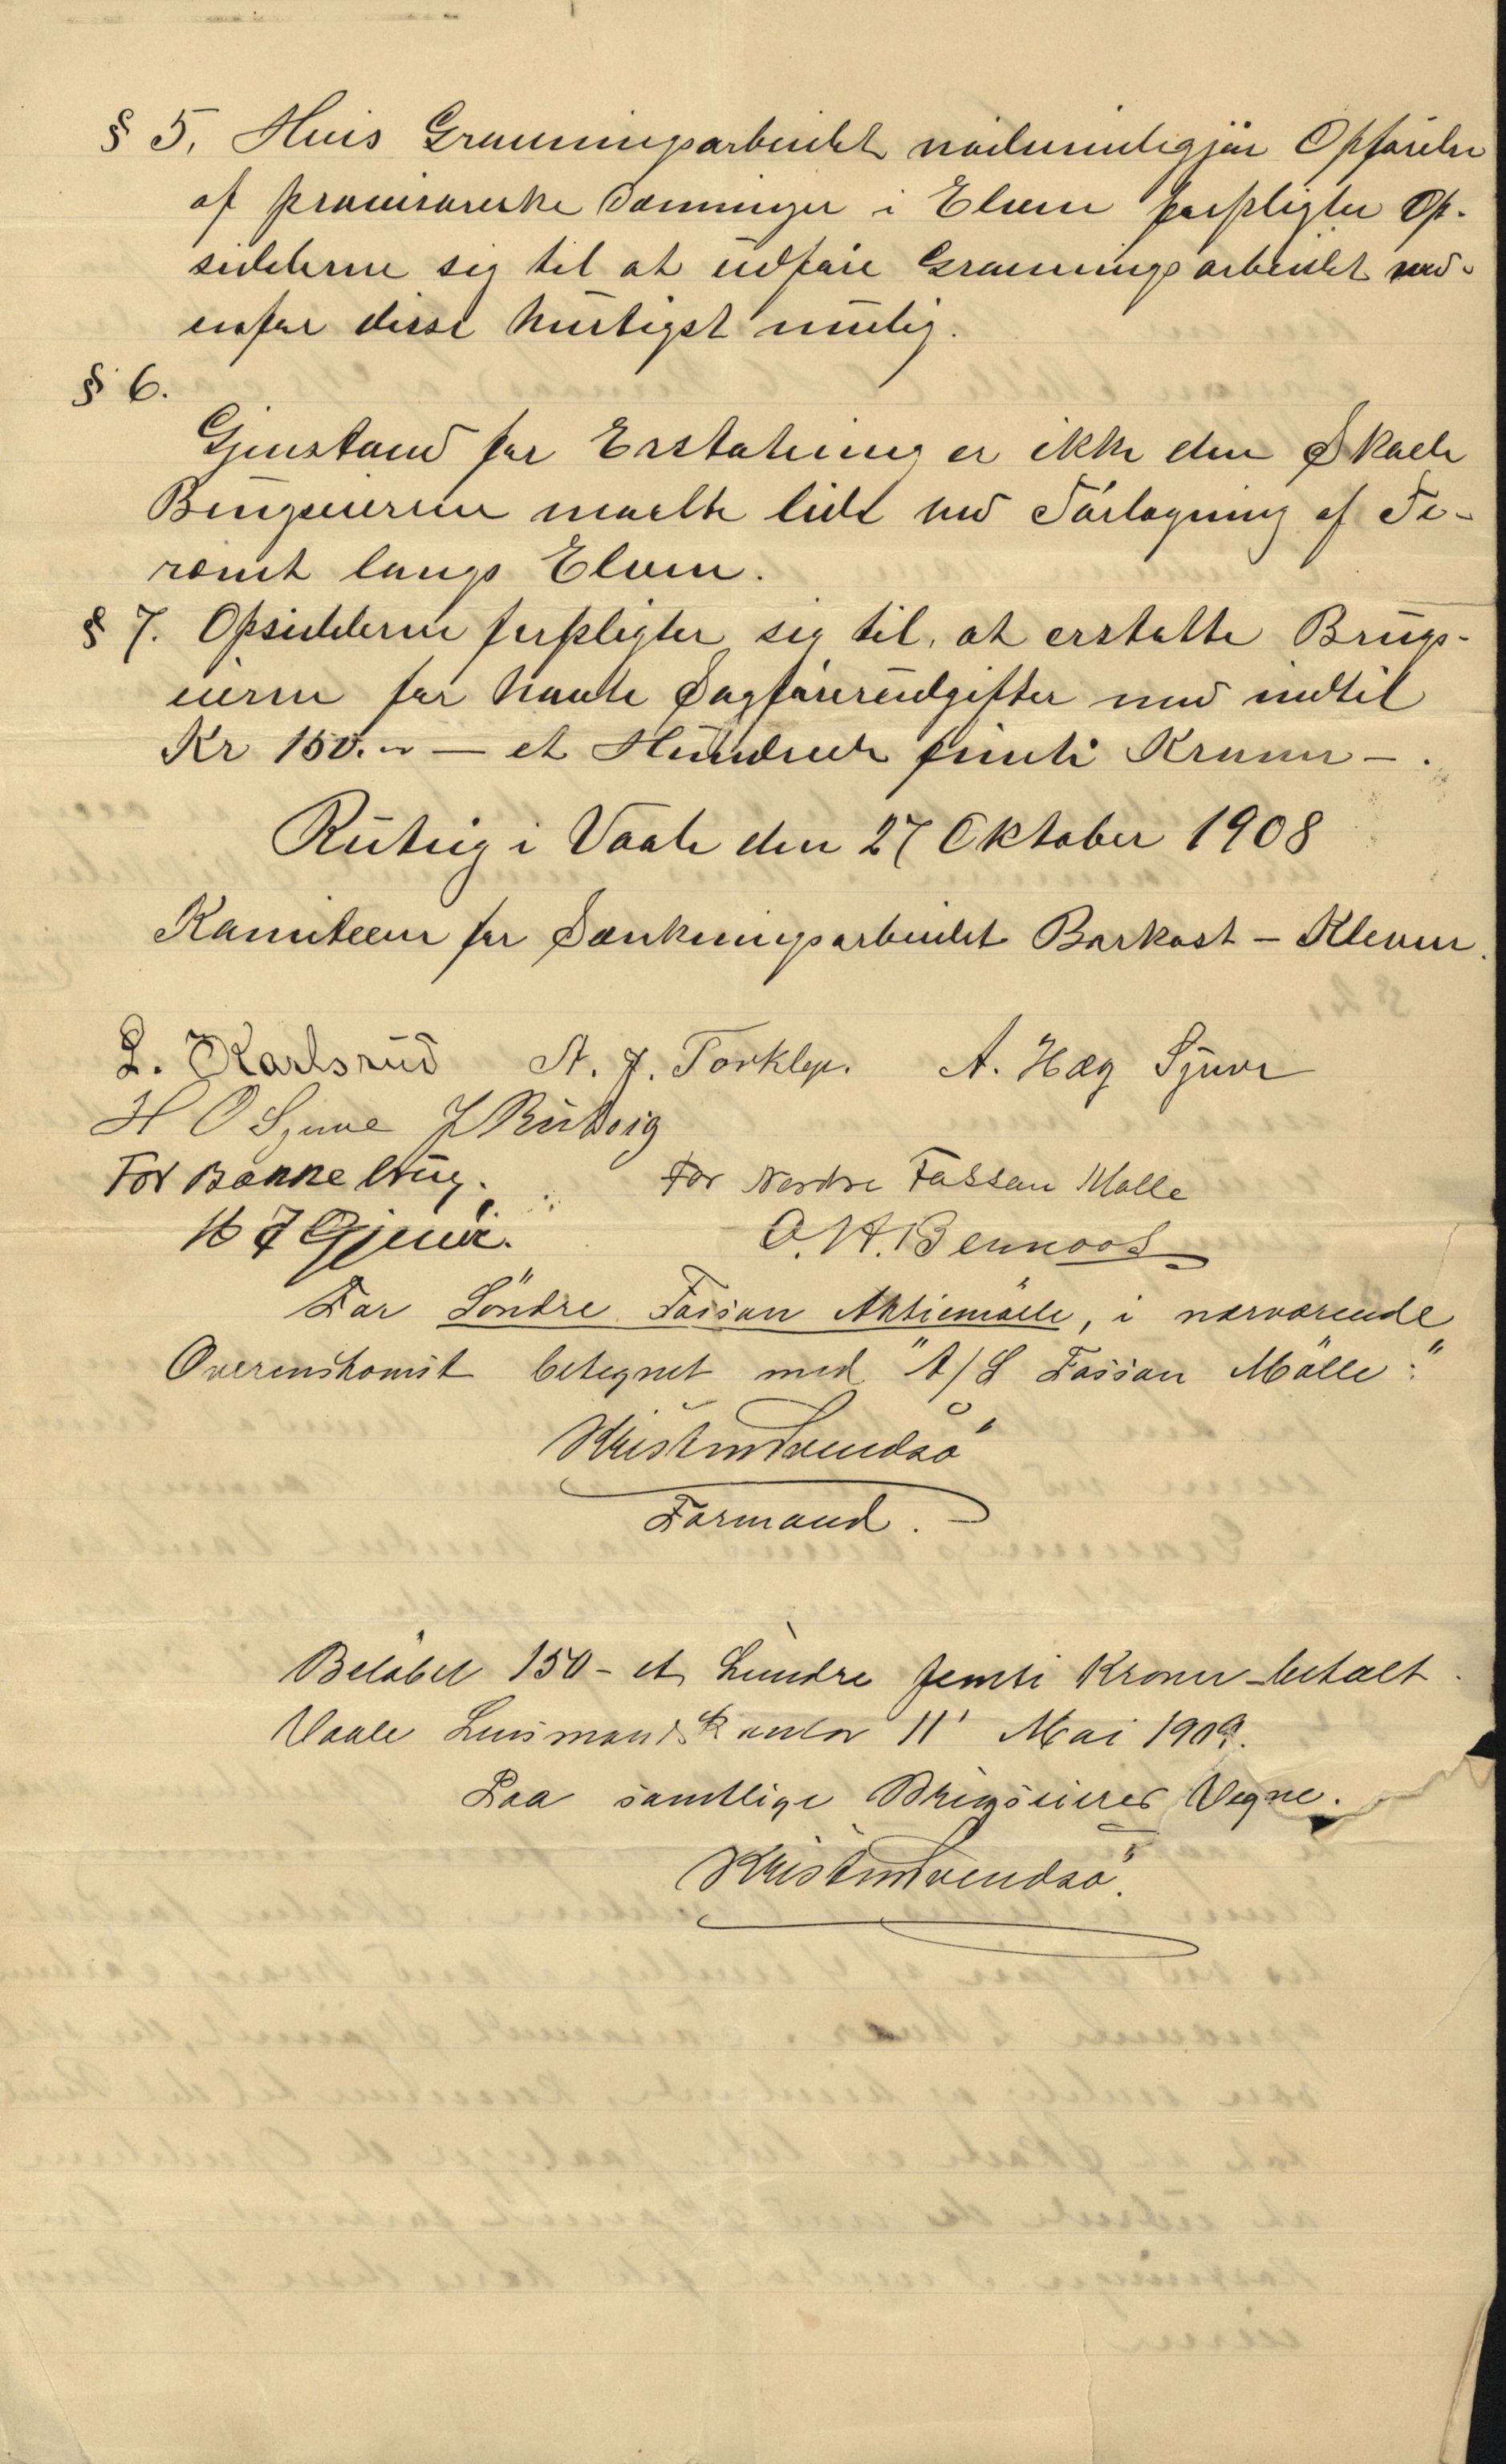 § 5, Hvis Gravningsarbeidet nödvendiggjör Opförelse
af provisoriske Dæmninger i Elven forpligter Op-
sidderne sig til at udföre Gravningsarbeidet ned-
enfor disse hurtigst mulig.
§ 6.
Gjenstand for Erstatning er ikke den Skade
Brugseierne maatte lide ved Törlægning af Te-
rænet langs Elven.
§ 7. Opsidderne forpligter sig til, at erstatte Brugs-
eierne for havte Sagförerudgifter med indtil
Kr 150.- — et Hundrede femti Kroner — .
Rutvig i Vaale den 27 Oktober 1908
Komiteen for Sænkningsarbeidet Borkost – Kleven.
L. Karlsrud A. J. Torklep. A. Hæg Sjuve
H O Sjuve J Rutvig
For Bakke brug. For Nordre Fossan Mölle
H J Gjeuve. O. H. Bennood
For Söndre Fossan Aktiemölle, i nærværende
Overenskomst betegnet med "A/S Fossan Mölle:"
Krist Svendsö
Formand.
Belöbet 150 – et hundre femti Kroner – betalt.
Vaale Lensmandskontor 11' Mai 1909.
Paa samtlige Brugseieres Vegne.
Krist Svendsö.